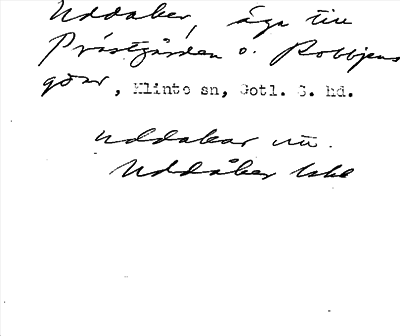 Uddaker, äga till
Prästgården o. Robbjens
gård, Klinte sn, Gotl. S. hd.
uddakar
Uddåker